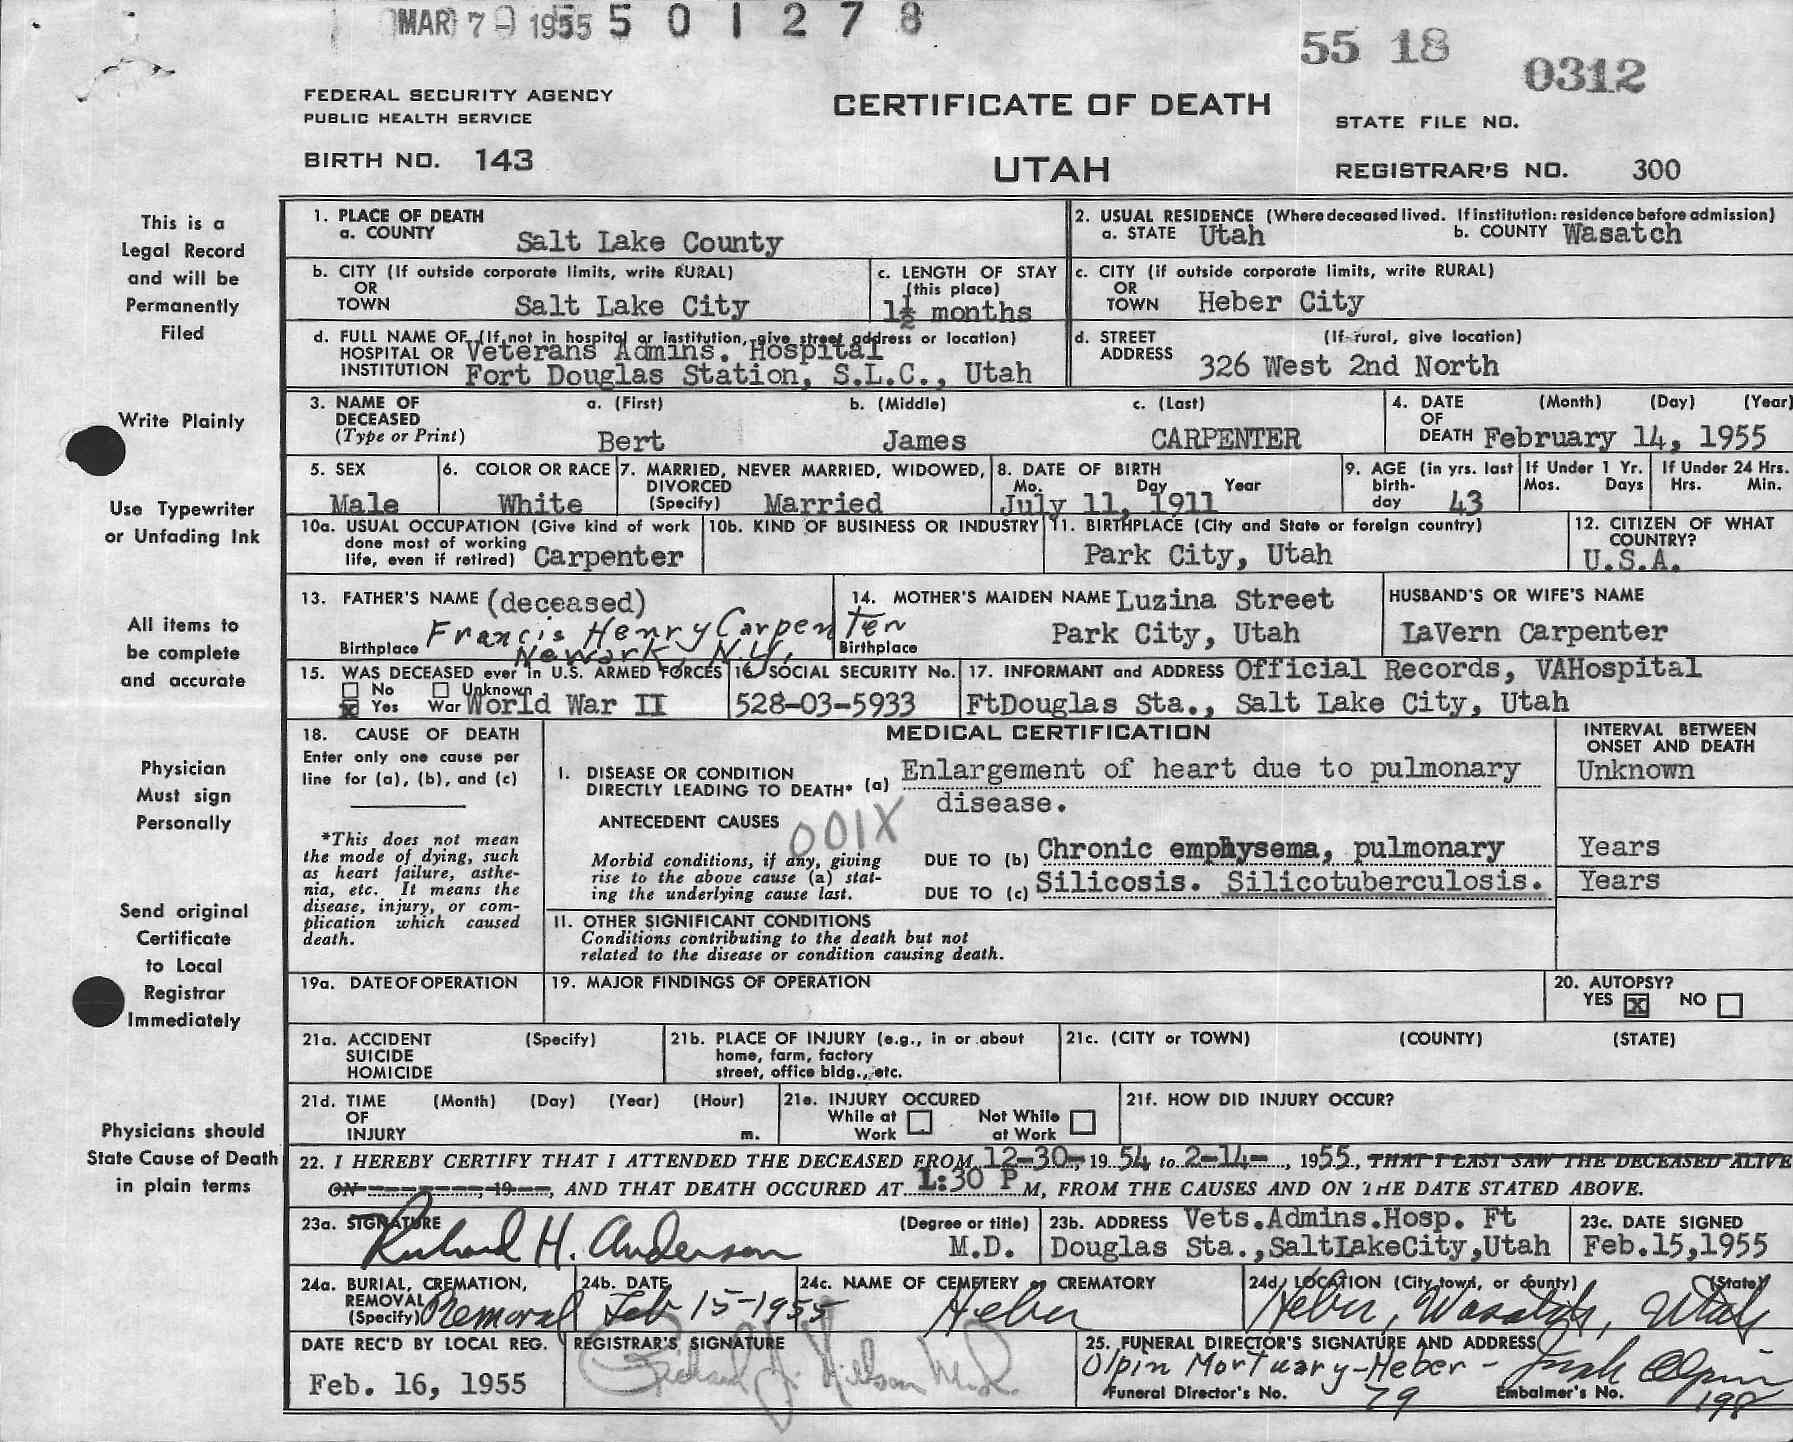 MAR 7 - 1955 5 0 1 2 7 8
55 18
0312
FEDERAL SECURITY AGENCY
PUBLIC HEALTH SERVICE
CERTIFICATE OF DEATH
STATE FILE NO.
BIRTH NO. 143
UTAH
REGISTRAR'S NO. 300
This is a
Legal Record
and will be
Permanently
Filed
Write Plainly
Use Typewriter
or Unfading Ink
All items to
be complete
and accurate
Physician
Must sign
Personally
Send original
Certificate
to Local
Registrar
Immediately
Physicians should
State Cause of Death
in plain terms
1. PLACE OF DEATH
a. COUNTY Salt Lake County
2. USUAL RESIDENCE (Where deceased lived. If institution: residence before admission)
a. STATE Utah b. COUNTY Wasatch
b. CITY (If outside corporate limits, write RURAL)
OR
TOWN Salt Lake City
c. LENGTH OF STAY
(this place)
1½ months
c. CITY (if outside corporate limits, write RURAL)
OR
TOWN Heber City
d. FULL NAME OF (If not in hospital or institution, give street address or location)
HOSPITAL OR Veterans Admins. Hospital
INSTITUTION Fort Douglas Station, S.L.C., Utah
d. STREET (If rural, give location)
ADDRESS 326 West 2nd North
3. NAME OF a. (First) b. (Middle) c. (Last)
DECEASED
(Type or Print) Bert James CARPENTER
4. DATE (Month) (Day) (Year)
OF
DEATH February 14, 1955
5. SEX
Male
6. COLOR OR RACE
White
7. MARRIED, NEVER MARRIED, WIDOWED,
DIVORCED
(Specify) Married
8. DATE OF BIRTH
Mo. Day Year
July 11, 1911
9. AGE (in yrs. last
birth-
day 43
If Under 1 Yr.
Mos. Days
If Under 24 Hrs.
Hrs. Min.
10a. USUAL OCCUPATION (Give kind of work
done most of working
life, even if retired) Carpenter
10b. KIND OF BUSINESS OR INDUSTRY
11. BIRTHPLACE (City and State or foreign country)
Park City, Utah
12. CITIZEN OF WHAT
COUNTRY?
U.S.A.
13. FATHER'S NAME (deceased)
Francis Henry Carpenter
Birthplace Newark, N.Y.
14. MOTHER'S MAIDEN NAME Luzina Street
Park City, Utah
Birthplace
HUSBAND'S OR WIFE'S NAME
LaVern Carpenter
15. WAS DECEASED ever in U.S. ARMED FORCES
No Unknown
Yes War World War II
16. SOCIAL SECURITY No.
528-03-5933
17. INFORMANT and ADDRESS Official Records, VAHospital
FtDouglas Sta., Salt Lake City, Utah
18. CAUSE OF DEATH
Enter only one cause per
line for (a), (b), and (c)
*This does not mean
the mode of dying, such
as heart failure, asthe-
nia, etc. It means the
disease, injury, or com-
plication which caused
death.
MEDICAL CERTIFICATION
INTERVAL BETWEEN
ONSET AND DEATH
I. DISEASE OR CONDITION
DIRECTLY LEADING TO DEATH* (a) Enlargement of heart due to pulmonary
disease.
Unknown
ANTECEDENT CAUSES
001X
Morbid conditions, if any, giving
rise to the above cause (a) stat-
ing the underlying cause last.
DUE TO (b) Chronic emphysema, pulmonary Years
DUE TO (c) Silicosis. Silicotuberculosis. Years
II. OTHER SIGNIFICANT CONDITIONS
Conditions contributing to the death but not
related to the disease or condition causing death.
19a. DATE OF OPERATION
19. MAJOR FINDINGS OF OPERATION
20. AUTOPSY?
YES X NO
21a. ACCIDENT (Specify)
SUICIDE
HOMICIDE
21b. PLACE OF INJURY (e.g., in or about
home, farm, factory
street, office bldg., etc.
21c. (CITY or TOWN) (COUNTY) (STATE)
21d. TIME (Month) (Day) (Year) (Hour)
OF
INJURY m.
21e. INJURY OCCURED
While at Not While
Work at Work
21f. HOW DID INJURY OCCUR?
22. I HEREBY CERTIFY THAT I ATTENDED THE DECEASED FROM 12-30-, 1954 to 2-14-, 1955, THAT I LAST SAW THE DECEASED ALIVE
ON , 19 , AND THAT DEATH OCCURED AT 1:30 P M, FROM THE CAUSES AND ON THE DATE STATED ABOVE.
23a. SIGNATURE (Degree or title)
Richard H. Anderson M.D.
23b. ADDRESS Vets.Admins.Hosp. Ft
Douglas Sta.,SaltLakeCity,Utah
23c. DATE SIGNED
Feb.15,1955
24a. BURIAL, CREMATION,
REMOVAL
(Specify) Removal
24b. DATE
Feb 15-1955
24c. NAME OF CEMETERY or CREMATORY
Heber
24d. LOCATION (City, town, or county) (State)
Heber, Wasatch, Utah
DATE REC'D BY LOCAL REG.
Feb. 16, 1955
REGISTRAR'S SIGNATURE
25. FUNERAL DIRECTOR'S SIGNATURE AND ADDRESS
Olpin Mortuary-Heber - Olpin
Funeral Director's No. 79 Embalmer's No. 198